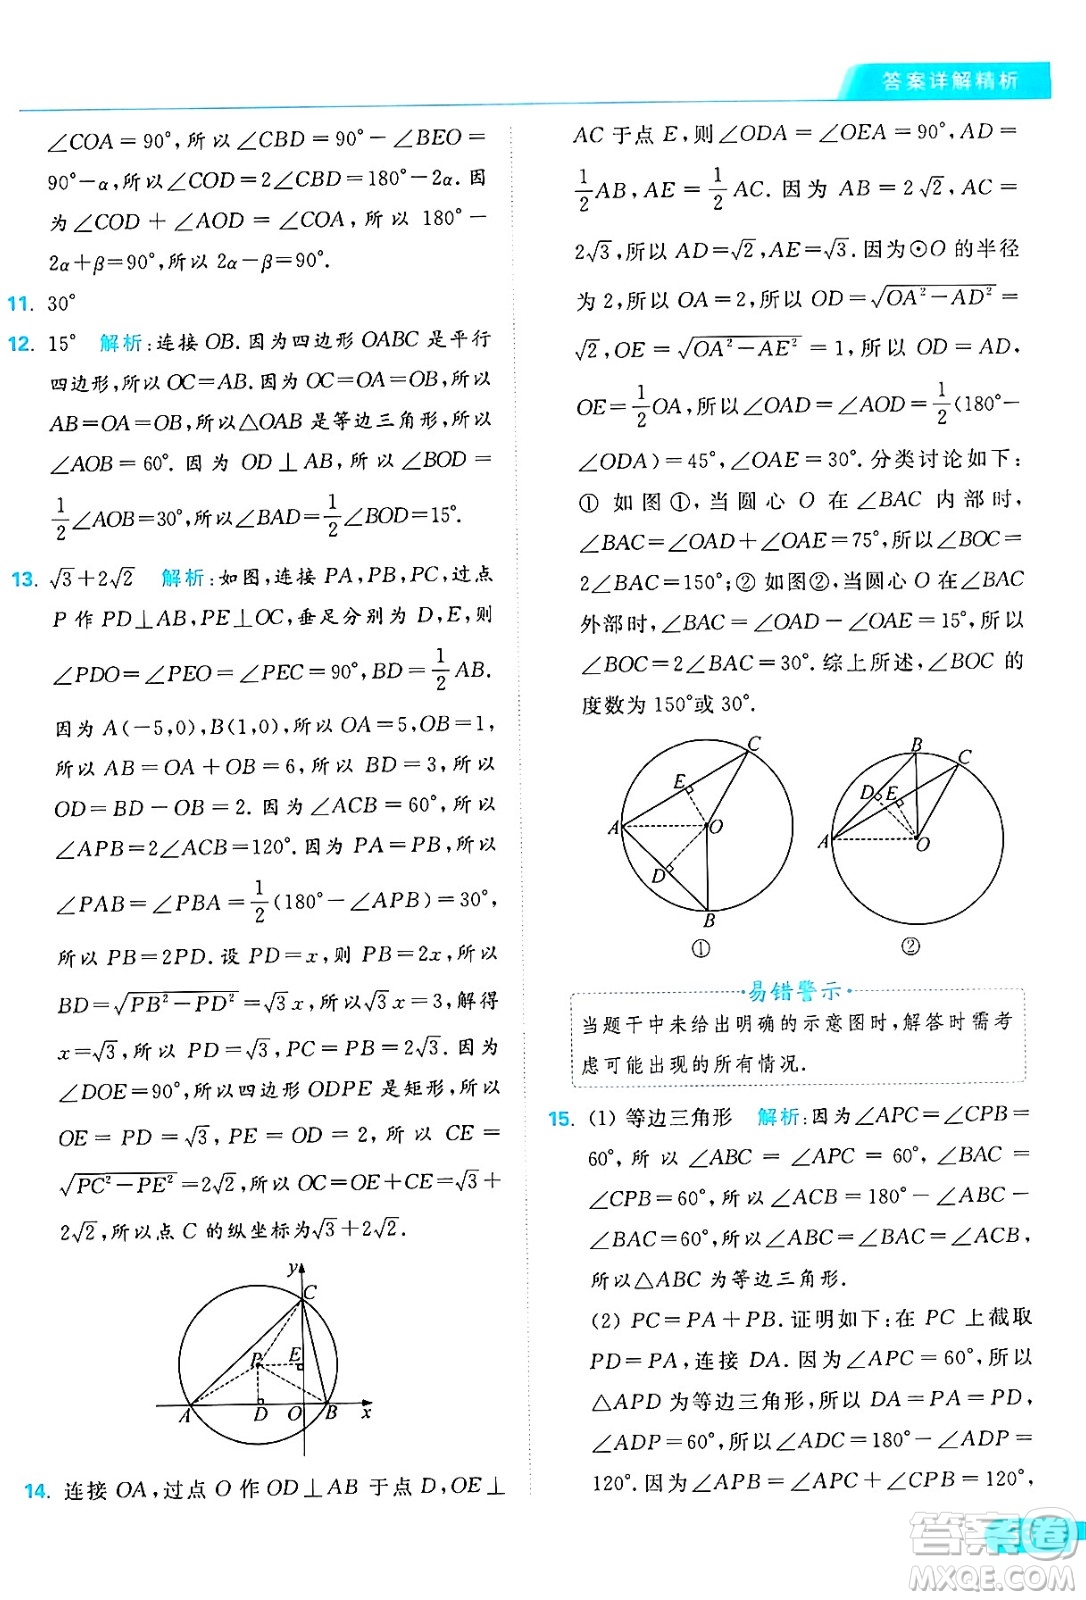 答案详解精析
∠COA=90°,所以∠CBD=90°-∠BEO=
90°-α,所以∠COD=2∠CBD=180°-2α.因
为∠COD+∠AOD=∠COA,所以180°-
2α+β=90°,所以2α-β=90°.
11. 30°
12. 15° 解析:连接OB.因为四边形OABC是平行
四边形,所以OC=AB.因为OC=OA=OB,所以
AB=OA=OB,所以△OAB是等边三角形,所以
∠AOB=60°.因为OD⊥AB,所以∠BOD=
1/2∠AOB=30°,所以∠BAD=1/2∠BOD=15°.
13. √3+2√2 解析:如图,连接PA,PB,PC,过点
P作PD⊥AB,PE⊥OC,垂足分别为D,E,则
∠PDO=∠PEO=∠PEC=90°,BD=1/2AB.
因为A(-5,0),B(1,0),所以OA=5,OB=1,
所以AB=OA+OB=6,所以BD=3,所以
OD=BD-OB=2.因为∠ACB=60°,所以
∠APB=2∠ACB=120°.因为PA=PB,所以
∠PAB=∠PBA=1/2(180°-∠APB)=30°,
所以PB=2PD.设PD=x,则PB=2x,所以
BD=√(PB²-PD²)=√3x,所以√3x=3,解得
x=√3,所以PD=√3,PC=PB=2√3.因为
∠DOE=90°,所以四边形ODPE是矩形,所以
OE=PD=√3,PE=OD=2,所以CE=
√(PC²-PE²)=2√2,所以OC=OE+CE=√3+
2√2,所以点C的纵坐标为√3+2√2.
y
C
P
E
A
D
O
B
x
14. 连接OA,过点O作OD⊥AB于点D,OE⊥
AC于点E,则∠ODA=∠OEA=90°,AD=
1/2AB,AE=1/2AC.因为AB=2√2,AC=
2√3,所以AD=√2,AE=√3.因为⊙O的半径
为2,所以OA=2,所以OD=√(OA²-AD²)=
√2,OE=√(OA²-AE²)=1,所以OD=AD,
OE=1/2OA,所以∠OAD=∠AOD=1/2(180°-
∠ODA)=45°,∠OAE=30°.分类讨论如下:
①如图①,当圆心O在∠BAC内部时,
∠BAC=∠OAD+∠OAE=75°,所以∠BOC=
2∠BAC=150°;②如图②,当圆心O在∠BAC
外部时,∠BAC=∠OAD-∠OAE=15°,所以
∠BOC=2∠BAC=30°.综上所述,∠BOC的
度数为150°或30°.
C
E
A
O
D
B
①
B
C
D
E
A
O
②
易错警示
当题干中未给出明确的示意图时,解答时需考
虑可能出现的所有情况.
15. (1)等边三角形 解析:因为∠APC=∠CPB=
60°,所以∠ABC=∠APC=60°,∠BAC=
∠CPB=60°,所以∠ACB=180°-∠ABC-
∠BAC=60°,所以∠ABC=∠BAC=∠ACB,
所以△ABC为等边三角形.
(2)PC=PA+PB.证明如下:在PC上截取
PD=PA,连接DA.因为∠APC=60°,所以
△APD为等边三角形,所以DA=PA=PD,
∠ADP=60°,所以∠ADC=180°-∠ADP=
120°.因为∠APB=∠APC+∠CPB=120°,
答案圈
MXQE.COM